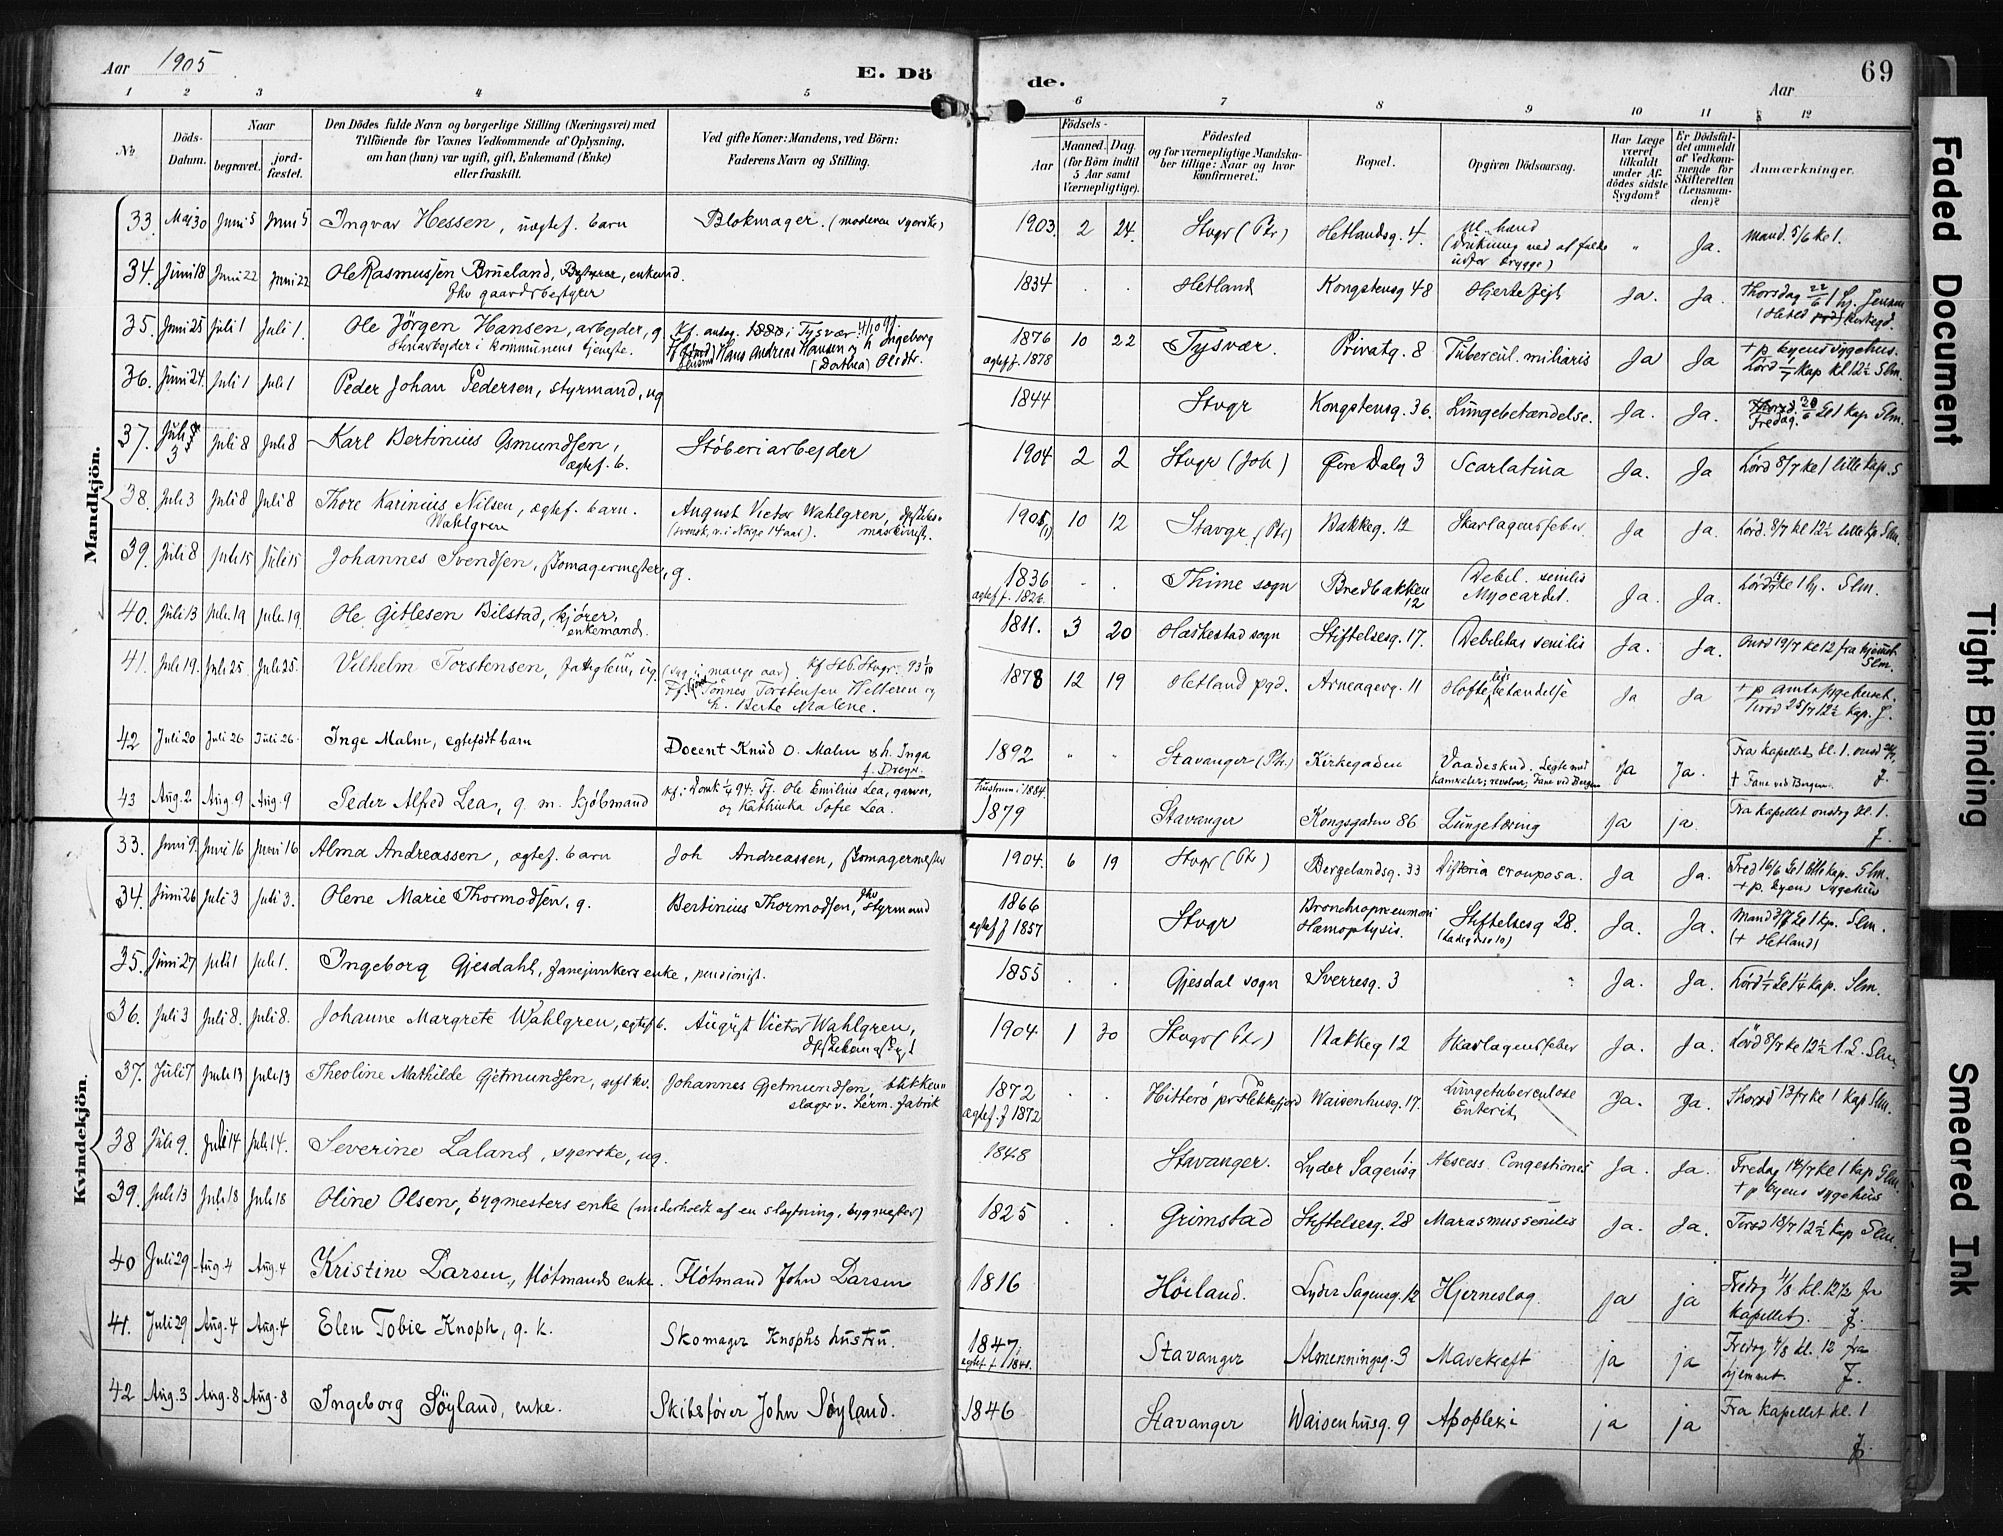 Aar 1905
E. Dö
de.
Aar
69
1 2 3 4 5 6 7 8 9 10 11 12
No.
Döds-Datum.
Naar
begravet.
jord-fæstet.
Den Dödes fulde Navn og borgerlige Stilling (Næringsvei) med
Tilföiende for Voxnes Vedkommende af Oplysning,
om han (hun) var ugift, gift, Enkemand (Enke)
eller fraskilt.
Ved gifte Koner: Mandens, ved Börn:
Faderens Navn og Stilling.
Födsels-
Aar
Maaned. Dag.
(for Börn indtil
5 Aar samt
Værnepligtige).
Födested
og for værnepligtige Mandska-
ber tillige: Naar og hvor
konfirmeret.
Bopæl.
Opgiven Dödsaarsag.
Har Læge
været
tilkaldt
under Af-
dödes sidste
Sygdom?
Er Dödsfal-
det anmeldt
af Vedkom-
mende for
Skifteretten
(Lensman-
den)?
Anmærkninger.
Mandkjön.
33. Maj 30 Juni 5 Juni 5 Ingvar Hessen, uægtef. barn Blokmager. (moderen syerske) 1903. 2 24. Stvgr (Ptr) Hetlandsg. 4. " Ja. Mand. 5/6 kl 1.
34. Juni 18 Juni 22 Juni 22 Ole Rasmussen Brueland, enkemd.
fhv gaardsbestyrer 1834 . . Hetland Kongstensg 48 Hjertefejl Ja. Ja. Thorsdag 22/6
35. Juni 25 Juli 1 Juli 1. Ole Jörgen Hansen, arbejder, g.
Stenarbejder i kommunens tjeneste. Hans Andreas Hansen og h Ingeborg
(Dorthea) Olsdtr. 1876
ægtef. f. 1878 10 22 Tysvær. Privatg. 8 Tubercul. miliaris Ja Ja + p byens sygehus.
Lörd 1/7 kap kl 12½ Slm.
36. Juni 24. Juli 1 Juli 1 Peder Johan Pedersen, styrmand, ug 1844 Stvgr Kongstensg. 36. Lungebetændelse. Ja. Ja. Fredag. kap Slm.
37. Juli 3 Juli 8 Juli 8 Karl Bertinius Gsmundsen,
ægtef. b. Stöberiarbejder 1904 2 2 Stvgr (Joh) Øvre Dalg 3 Scarlatina Ja. Ja Lörd 8/7 kl 1 lille kap. S
38. Juli 3 Juli 8 Juli 8 Thore Karinius Nilsen, ægtef. barn.
Wahlgren August Victor Wahlgren,
(svensk, v. i Norge 14 aar). 10 12 Stavgr. (Ptr) Bakkeg. 12 Skarlagensfeber Ja Ja. Lörd. 8/7 kl 12½ lille kp Slm.
39. Juli 8 Juli 15 Juli 15 Johannes Svendsen, skomagermester, g. 1836
ægtef f. 1826. . . Thime sogn Bredbakken
12 Debil. senilis
Myocardit. Ja. Ja. Slm.
40. Juli 13 Juli. 19 Juli. 19. Ole Gitlesen Bilstad, kjörer,
enkemand. 1811. 3 20 Haskestad sogn Stiftelsesg. 17. Debilitas senilis Ja. Ja. Onsd 19/7 kl 12 fra hjemmet
Slm.
41. Juli 19. Juli 25 Juli 25. Vilhelm Torstensen, ug. (syg i mange aar). Kf St.P. Stvgr.
Tönnes Torstensen Welteren og
h. Berte Malene. 1878 12 19 Hetland pgd. Arneagerg. 11 Hofteledsbetændelse Ja Ja + p amtssygehuset.
Tirsd 25/7 12½ kap. J.
42 Juli 20 Juli 26 Juli 26. Inge Malm, egtefödt barn Docent Knud O. Malm & h. Inga
f. Dreyr. 1892 " " Stavanger (Ptr.) Kirkegaden Vaadeskud. Legte med
kamerater; revolver, Fane ved Bergen Ja Ja. Fra kapellet kl. 1. onsd
† Fane ved Bergen. J.
43 Aug. 2 Aug. 9 Aug. 9 Peder Alfred Lea, g. m. kjöbmand kf: Domk ¼ 94. Ff. Ole Emilius Lea, garver,
og Kathinka Sofie Lea. hustruen: 1884.
1879 Stavanger Kongsgaden 86 Lungetæring ja ja. Fra kapellet onsdag kl. 1.
J.
Kvindekjön.
33. Juni 9. Juni 16 Juni 16 Alma Andreassen, ægtef. barn Joh Andreassen, skomagermester 1904. 6 19 Stvgr (Ptr) Bergelandsg. 33 Difteria crouposa. Ja Ja. Fred 16/6 kl 1 lille kap. Slm.
+ p. byens sygehus
34. Juni 26 Juli 3 Juli 3. Olene Marie Thormodsen, g. Bertinius Thormodsen, fhv styrmand 1866
ægtef f 1857 Stvgr Bronchopneumoni
Hæmoptysis. Stiftelsesg 28. Ja. Ja. Mand 3/7 kl 1 kp. Slm.
(+ Hetland)
35. Juni 27 Juli 1 Juli 1. Ingeborg Gjesdahl, fanejunkers enke, pensionist. 1855 . . Gjesdal sogn Sverresg. 3 " Ja. Ja. kap. Slm.
36. Juli 3 Juli 8. Juli 8. Johanne Margrete Wahlgren, ægtef b. August Victor Wahlgren, 1904. 1 30 Stvgr (Ptr) Bakkeg 12 Skarlagensfeber Ja. Ja. Lörd 8/7 kl 12½ Slm.
37. Juli 7 Juli 13 Juli 13 Theoline Mathilde Gjetmundsen, gift kv. Johannes Gjetmundsen, blikken-
slager v. herm. fabrik 1872
ægtef. f 1872 . . Hitterö pr Flekkefjord Waisenhusg. 17. Lungetuberculose
Enterit Ja. Ja. Thorsd 13/7 kl 1 kap Slm.
38 Juli 9. Juli 14 Juli 14. Severine Laland, syerske, ug. 1848 Stavanger. Lyder Sagensg 1 Abscess. Congestiones Ja. Ja. Fredag 14/7 kl 1 kap. Slm.
+ p byens sygehus
39. Juli 13 Juli 18 Juli 18 Oline Olsen, bygmesters enke (underholdt af en slægtning, bygmester) 1825 . . Grimstad Stiftelsesg. 28 Marasmus senilis Ja. Ja. Tirsd 18/7 12½ kap Slm.
40 Juli 29 Aug. 4 Aug. 4 Kristine Larsen, flötmands enke. Flötmand John Larsen 1816 Höiland. Lyder Sagensg. 12 Hjerneslag ja ja Fredag 4/8 kl. 12½ fra
kapellet. J.
41. Juli 29 Aug. 4 Aug. 4 Elen Tobie Knoph, g. k. Skomager Knophs hustru. 1847.
ægtef f 1841. Stavanger Almenningsg. 3 Mavekræft ja ja Fredag 4/8 kl. 12 fra
hjemmet. J.
42 Aug. 3 Aug. 8 Aug. 8 Ingeborg Söyland, enke. Skibsförer John Söyland. 1846 Stavanger Waisenhusg. 9 Apoplexi ja ja Fra kapellet kl. 1
J.
Faded Document
Tight Binding
Smeared Ink